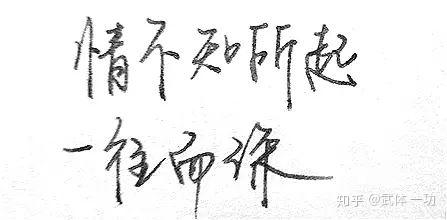 情不知所起
一往而深
知乎 @武体一功